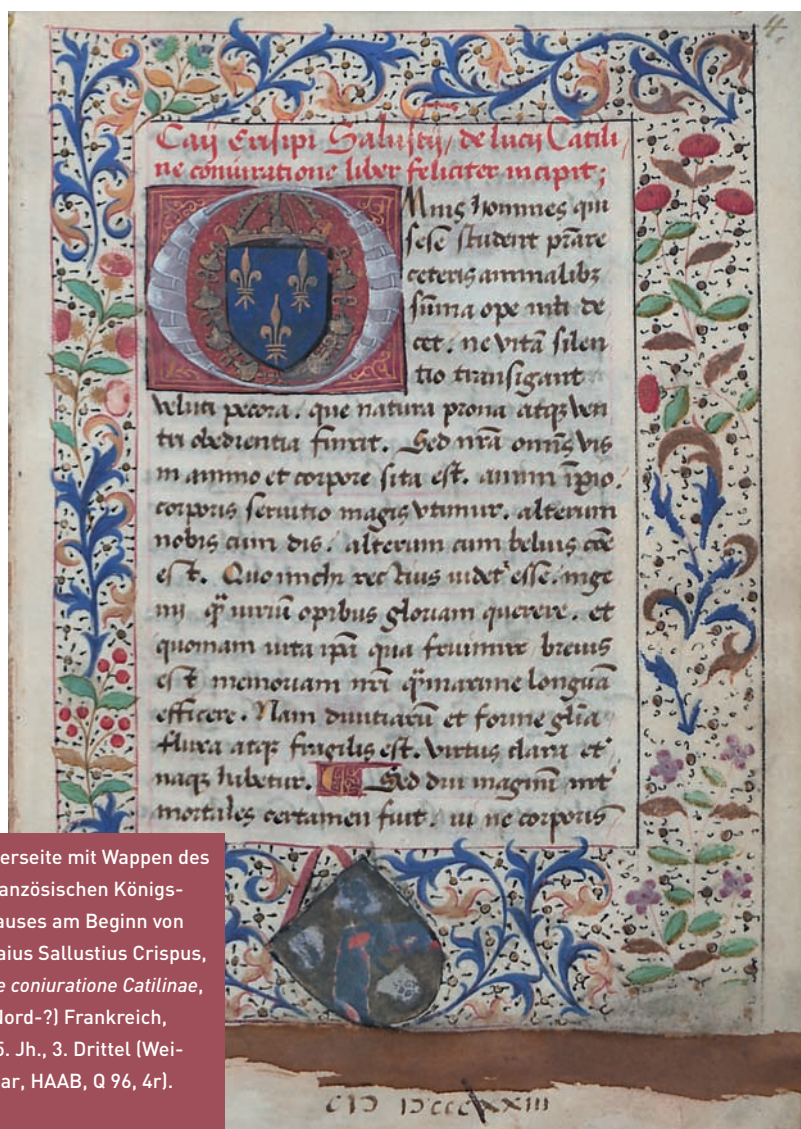 4.
Caÿ Crispi Salustÿ / de lucÿ Catili
ne coniuratione liber feliciter incipit;
Mnis homines qui
sese student p̄stare
ceteris animalibꝫ
sūma ope niti de
cet. ne vitā silen
tio transigant
veluti pecora. que natura prona atqꝫ ven
tri obedientia finxit. Sed nrā omīs vis
in animo et corpore sita est. animi īꝑio.
corporis seruitio magis vtimur. alterum
nobis cum dis. alterum cum beluis cōe
est. Quo michi rectius videt' esse. inge
nij q̄ virium opibus gloriam querere. et
quoniam vita ipā qua fruimur breuis
est memoriam nrī q̄maxime longuā
efficere. Nam diuitiarū et forme glīa
fluxa atqꝫ fragilis est. virtus clara et'
naqꝫ habetur. Sed diu magnū int'
mortales certamen fuit. vi ne corporis
erseite mit Wappen des
anzösischen Königs-
auses am Beginn von
aius Sallustius Crispus,
e coniuratione Catilinae,
Nord-?) Frankreich,
5. Jh., 3. Drittel (Wei-
ar, HAAB, Q 96, 4r).